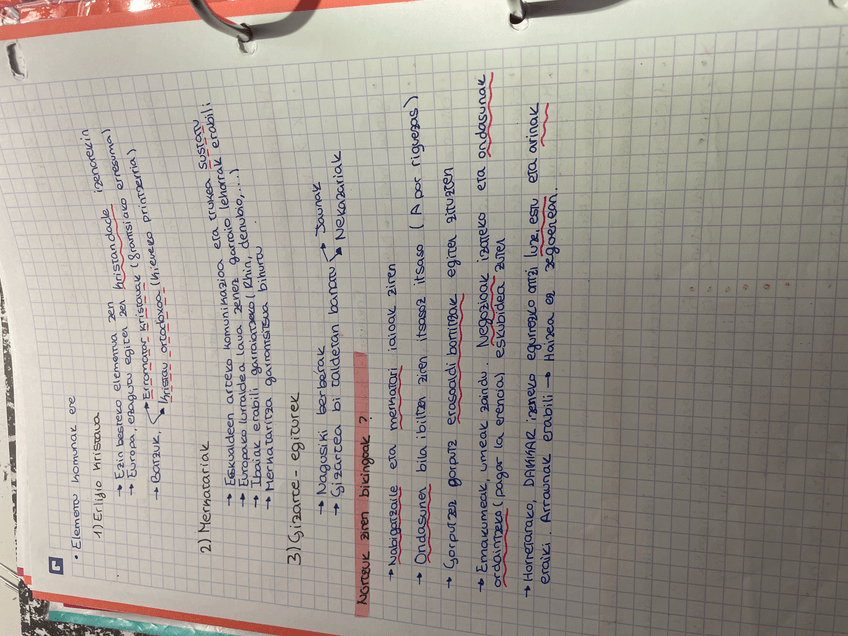 • Elementu komunak ere
1) Erlijio kristaua
→ Ezin besteko elementua zen kristandade izenarekin
→ Europa, ezagutu egiten zen (frantsiako erresuma)
→ Batzuk, → Erromatar kristauak
→ kristau ortodoxoa (kieveko printzerria)
2) Merkatariak
→ Eskualdeen arteko komunikazioa eta trukea sustatu
→ Europako lurraldea laua zenez garraio lehorrak erabili
→ Ibaiak erabili garraiatzeko (Rhin, denubio,...)
→ Merkataritza garrantsitsua bihurtu
3) Gizarte-egiturek
→ Nagusiki berberak
→ Gizartea bi taldetan banatu → Jaunak
→ Nekazariak
Nortzuk ziren bikingoak?
→ Nabigatzaile eta merkatari iaioak ziren
→ Ondasunen bila ibiltzen ziren itsasoz itsaso (A por riquezas)
→ Gorputzez gorputz erasoaldi bortitzak egiten zituzten
→ Emakumeak, umeak zaindu. Negozioak izateko eta ondasunak
ordaintzeko (pagar la erencia) eskubidea zuten
→ Horretarako, DAKKAR izeneko egurrezko ontzi luze, estu eta arinak
eraiki. Arraunak erabili → Haizea ez zegoenean.